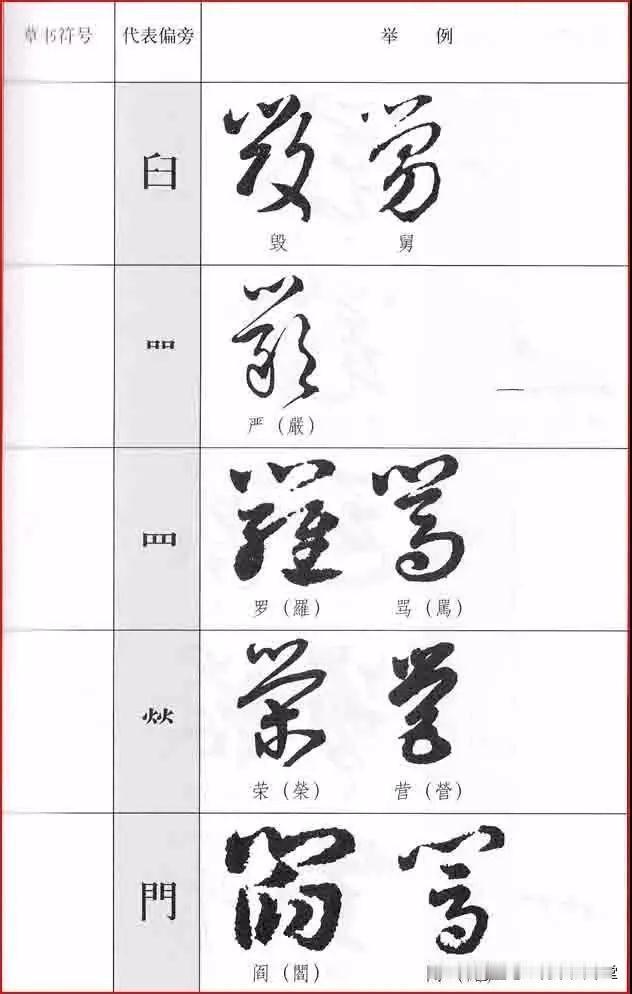 草书符号 代表偏旁 举 例
臼 毁 舅
吅 严（嚴）
罒 罗（羅） 骂（罵）
炏 荣（榮） 营（營）
門 阎（閻）